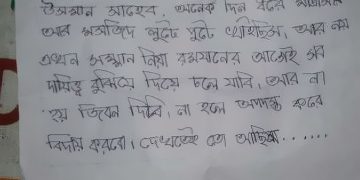 উসমান সাহেব, অনেক দিন ধরে
আর মসজিদে লুটে পুটে খাইছিস, আর নয়
এখন সম্মান নিয়া রমজানের আগেই সব
দায়িত্ব বুঝিয়ে দিয়ে চলে যাবি, আর না
হয় জিবন দিবি, না হলে অপদস্ত করে
বিদায় করবো, দেখতেই তো আছিস......